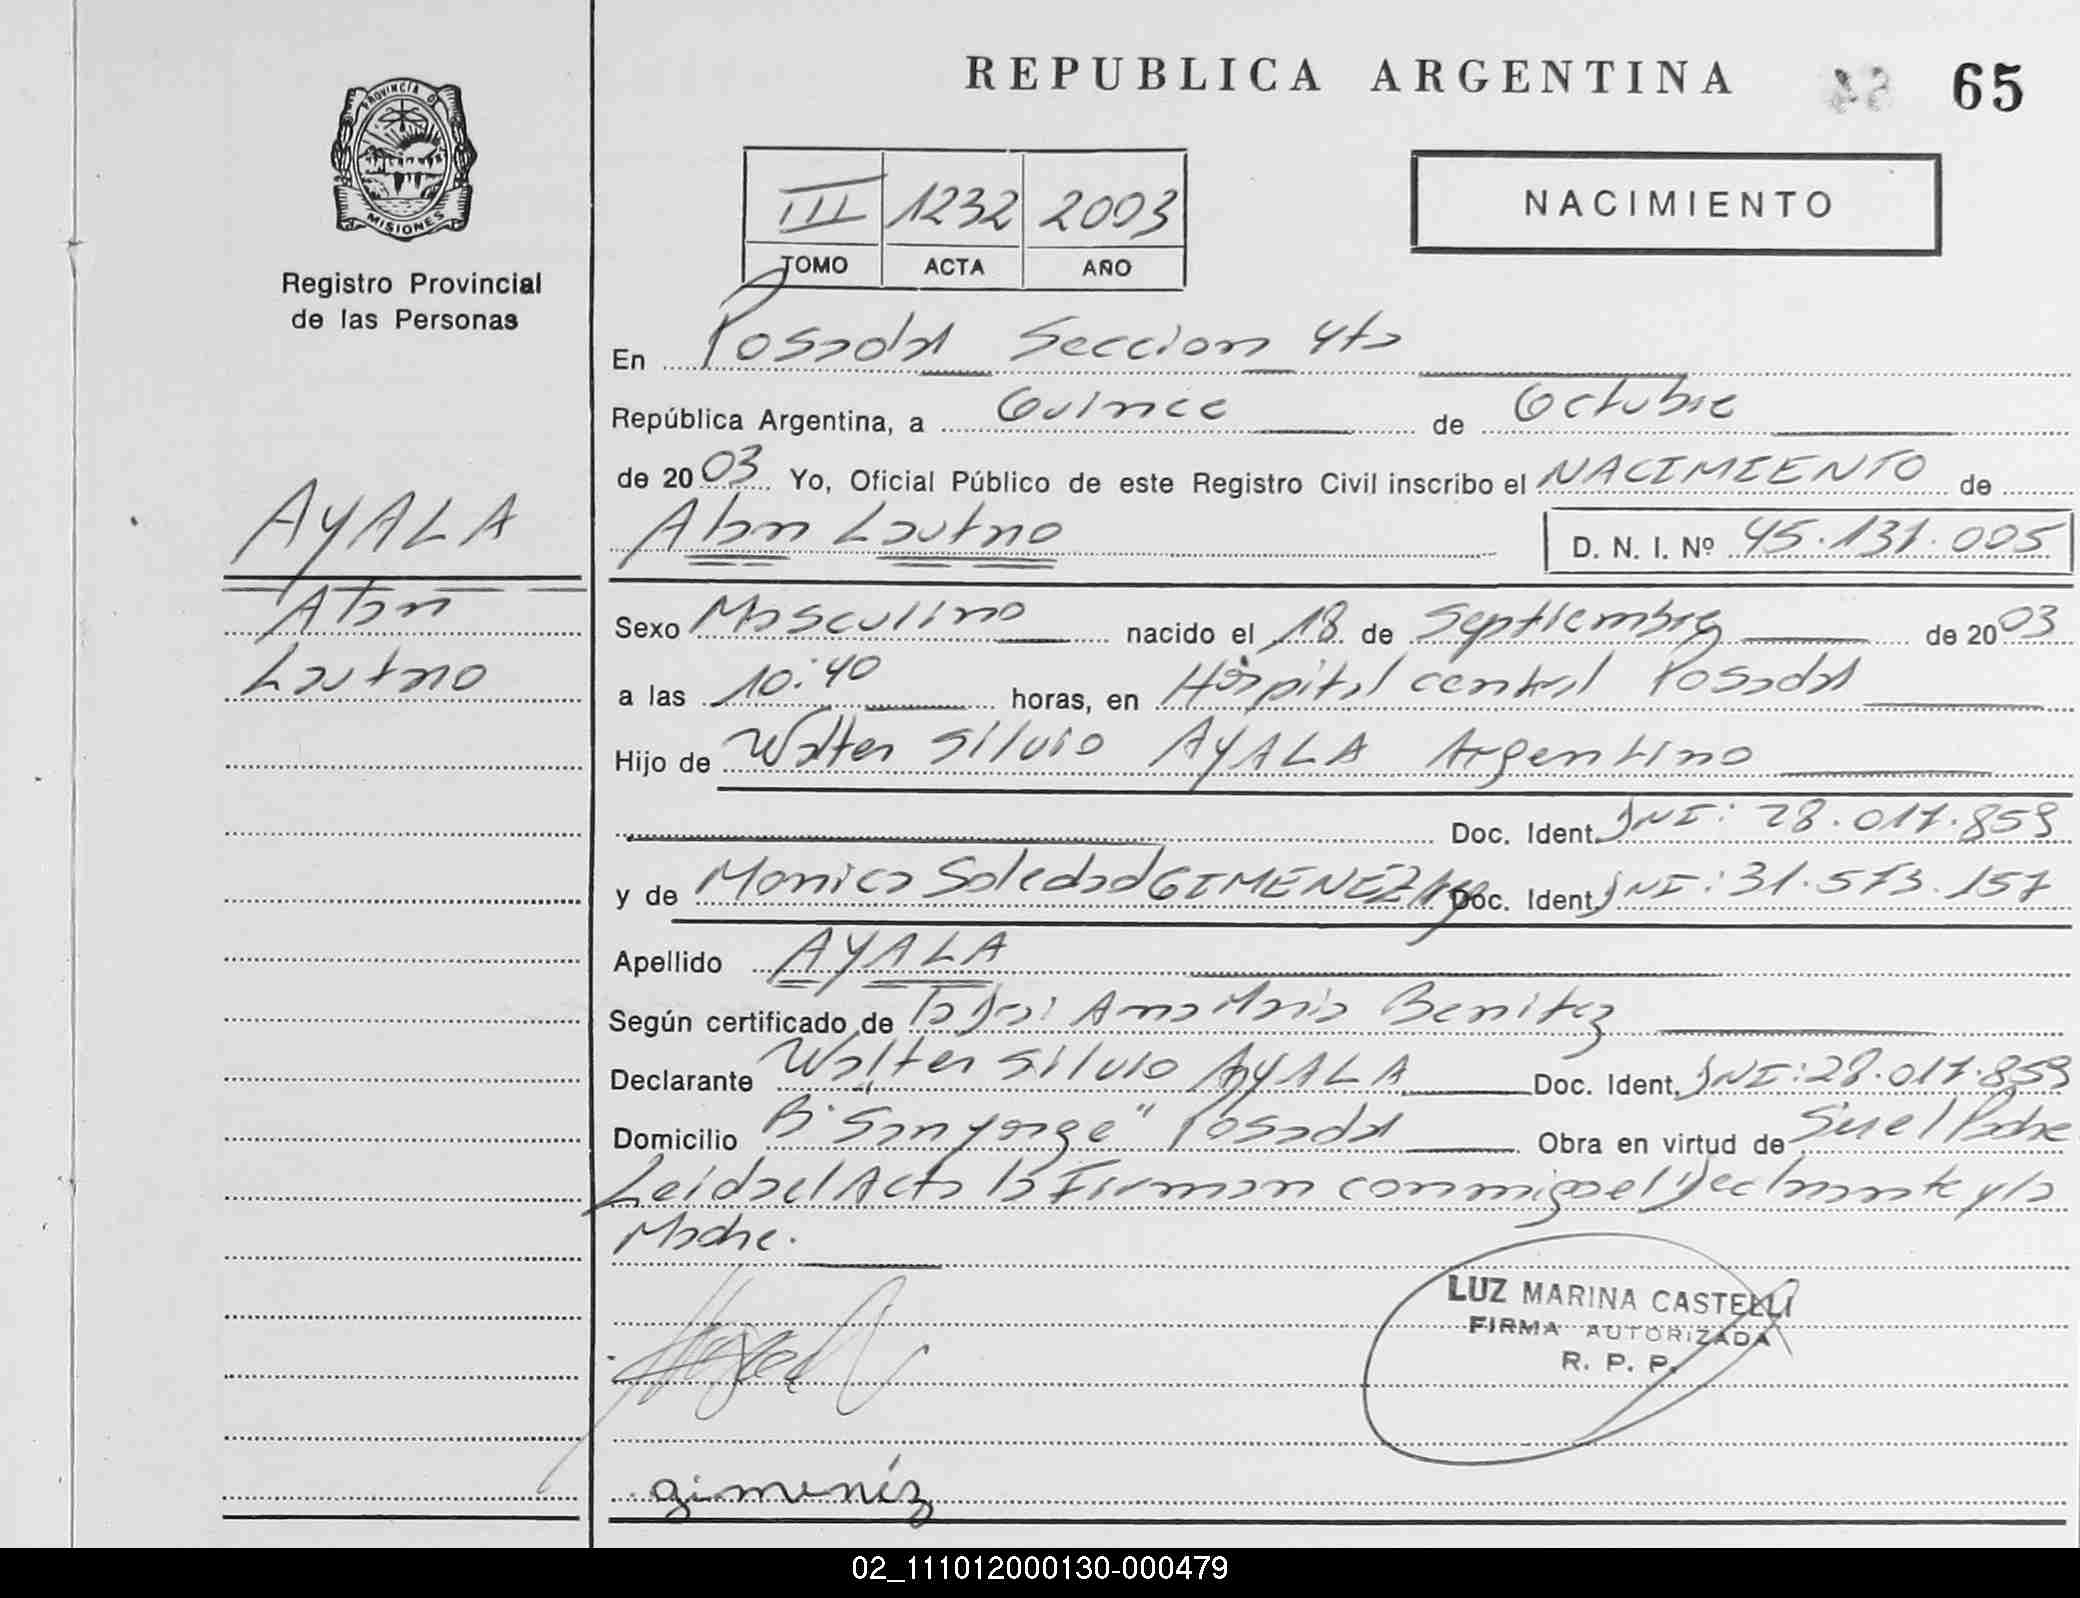 REPUBLICA ARGENTINA
65
PROVINCIA DE
MISIONES
Registro Provincial
de las Personas
III 1232 2003
TOMO ACTA AÑO
NACIMIENTO
En Posadas Seccion 4ta
República Argentina, a Quince de Octubre
de 2003 Yo, Oficial Público de este Registro Civil inscribo el NACIMIENTO de
Alan Lautaro D. N. I. Nº 45.131.005
AYALA
Alan
Lautaro
Sexo Masculino nacido el 18 de Septiembre de 2003
a las 10:40 horas, en Hospital central Posadas
Hijo de Walter Silvio AYALA Argentino
Doc. Ident. DNI: 28.017.859
y de Monica Soledad GIMENEZ Arg Doc. Ident. DNI: 31.573.157
Apellido AYALA
Según certificado de la Dra: Ana Maria Benitez
Declarante Walter Silvio AYALA Doc. Ident. DNI: 28.017.859
Domicilio B° "San Jorge" Posadas Obra en virtud de Ser el Padre
Leida el Acta la Firman conmigo el Declarante y la
Madre.
LUZ MARINA CASTELLI
FIRMA AUTORIZADA
R. P. P.
gimenéz
02_111012000130-000479